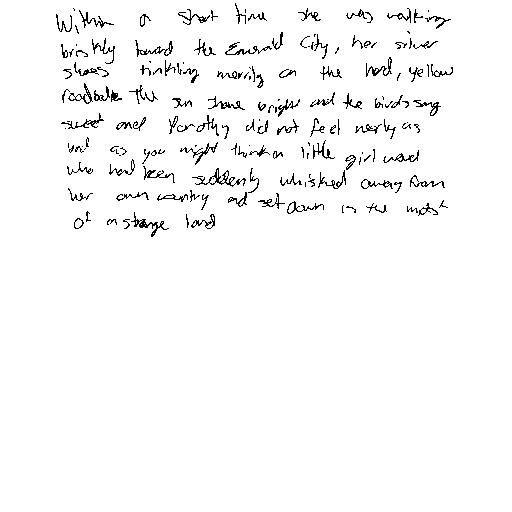 Within a short time she was walking
briskly toward the Emerald City, her silver
shoes tinkling merrily on the hard, yellow
The sun shone bright and the birds sang
sweet and Dorothy did not feel nearly as
bad as you might think a little girl would
who had been suddenly whisked away from
her own country and set down in the midst
of a strange land